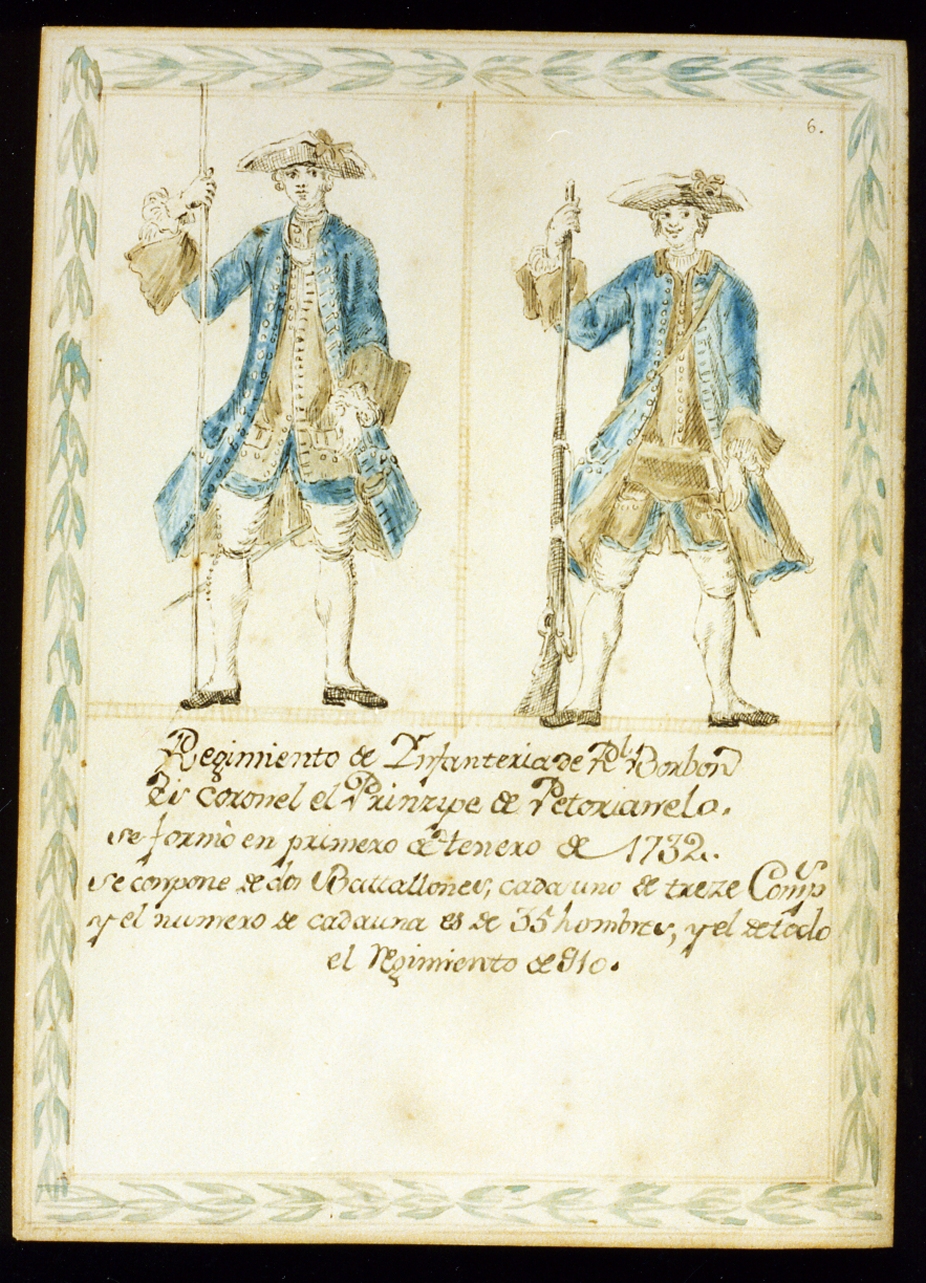 6.
Regimiento de Infanteria de Rl. Borbon
Es coronel el Prinzipe de Petorianelo.
se formò en primero de henero de 1732.
Se conpone de dos Battallones, cada uno de treze Comps
y el numero de cada una es de 35 hombres, y el de todo
el Regimiento de 910.